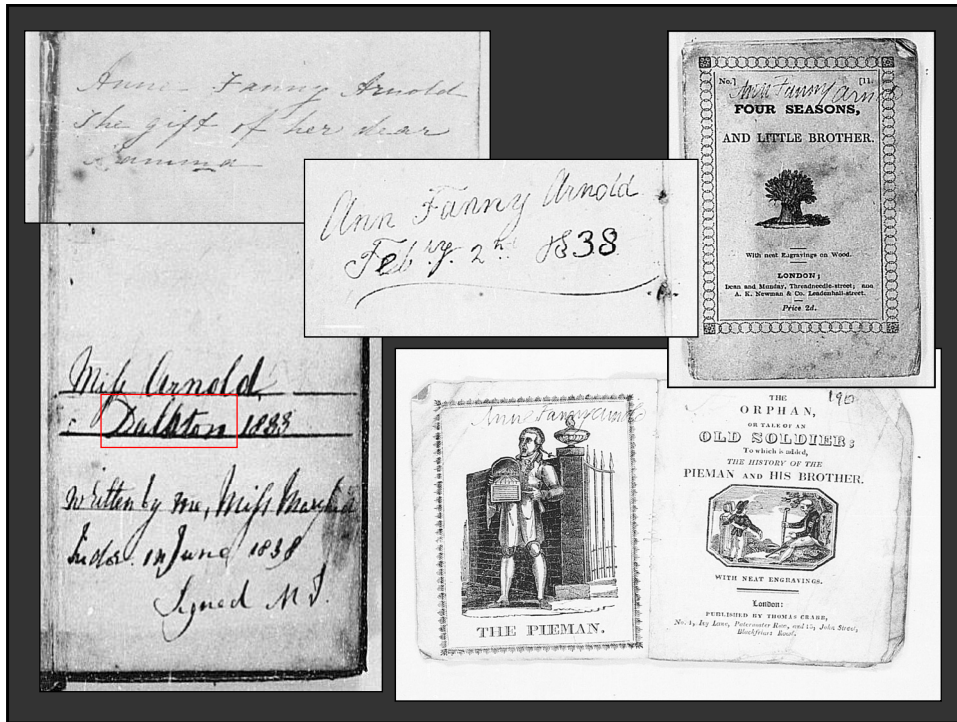 Anne Fanny Arnold
The gift of her dear
Mamma
Ann Fanny Arnold
Feb.ry. 2nd 1838
No.] [11.
Ann Fanny Arnold
FOUR SEASONS,
AND LITTLE BROTHER.
With neat Engravings on Wood.
LONDON;
Dean and Munday, Threadneedle-street; and
A. K. Newman & Co. Leadenhall-street.
Price 2d.
Miss Arnold
Dalston 1838
written by me, Miss
in June 1838
Signed
Ann Fanny Arnold
THE PIEMAN.
THE
ORPHAN,
OR TALE OF AN
OLD SOLDIER;
To which is added,
THE HISTORY OF THE
PIEMAN AND HIS BROTHER.
WITH NEAT ENGRAVINGS.
London:
PUBLISHED BY THOMAS CRABB,
No. 4, Ivy Lane, Paternoster Row, and 15, John Street,
Blackfriars Road.